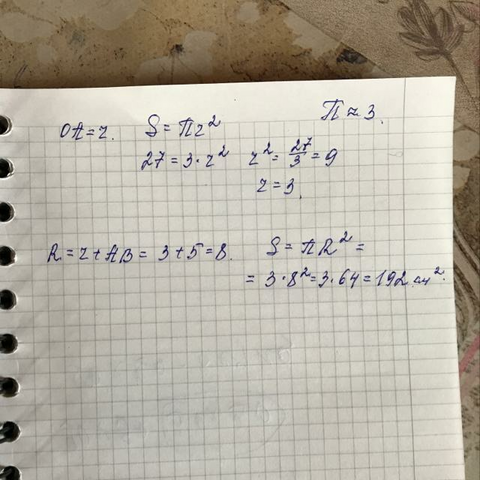 П ≈ 3.
OA = r. S = Пr²
27 = 3·r² r² = 27/3 = 9
r = 3.
R = r + AB = 3 + 5 = 8. S = ПR² =
= 3·8² = 3·64 = 192 см².